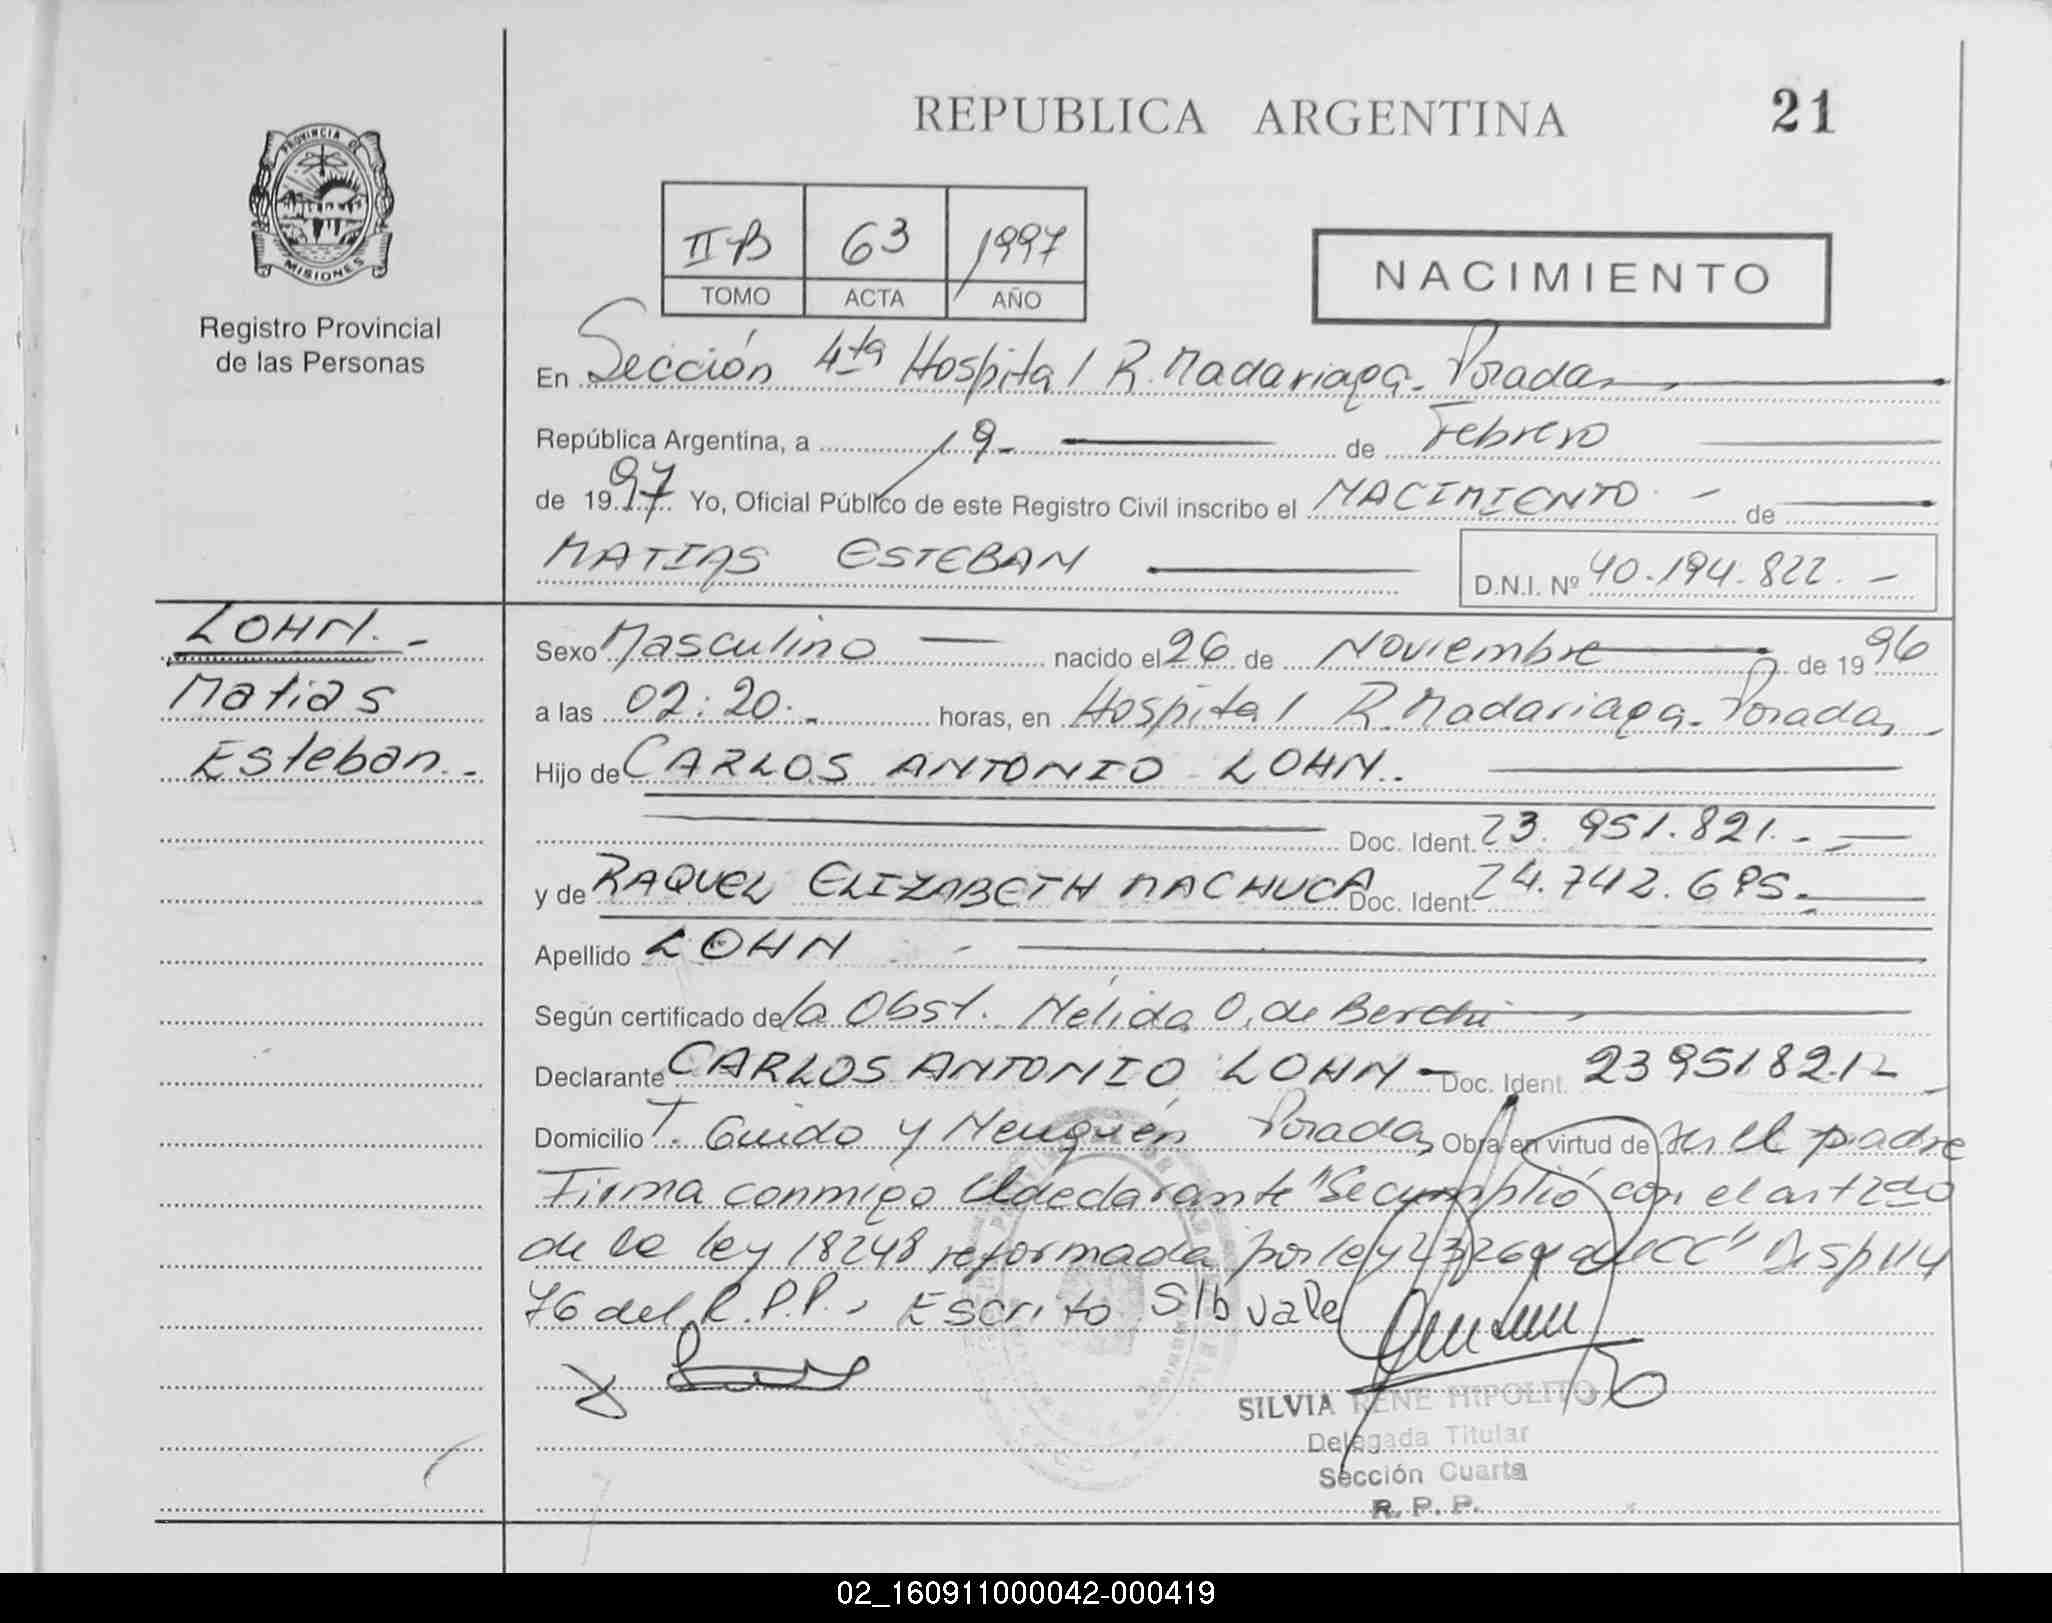 REPUBLICA ARGENTINA
21
PROVINCIA DE
MISIONES
Registro Provincial
de las Personas
II-B 63 1997
TOMO ACTA AÑO
NACIMIENTO
En Sección 4ta Hospital R. Madariaga. Posadas
República Argentina, a 19 de Febrero
de 1997 Yo, Oficial Público de este Registro Civil inscribo el NACIMIENTO de
MATIAS ESTEBAN
D.N.I. Nº 40.194.822.
LOHN.
Matias
Esteban.
Sexo Masculino nacido el 26 de Noviembre de 1996
a las 02:20. horas, en Hospital R. Madariaga. Posadas
Hijo de CARLOS ANTONIO LOHN.
Doc. Ident. 23.951.821.
y de RAQUEL ELIZABETH MACHUCA Doc. Ident. 24.742.695.
Apellido LOHN
Según certificado de la Obst. Nélida O. de Berchi
Declarante CARLOS ANTONIO LOHN Doc. Ident. 23951821
Domicilio T. Guido y Neuquén Posadas Obra en virtud de ser el padre
Firma conmigo el declarante "Se cumplió con el art 2do
de la ley 18248 reformada por ley 23264 del CC" Disp 114
76 del R.P.P., Escrito S/b vale
SILVIA RENE HIPOLITO
Delegada Titular
Sección Cuarta
R. P. P.
02_160911000042-000419